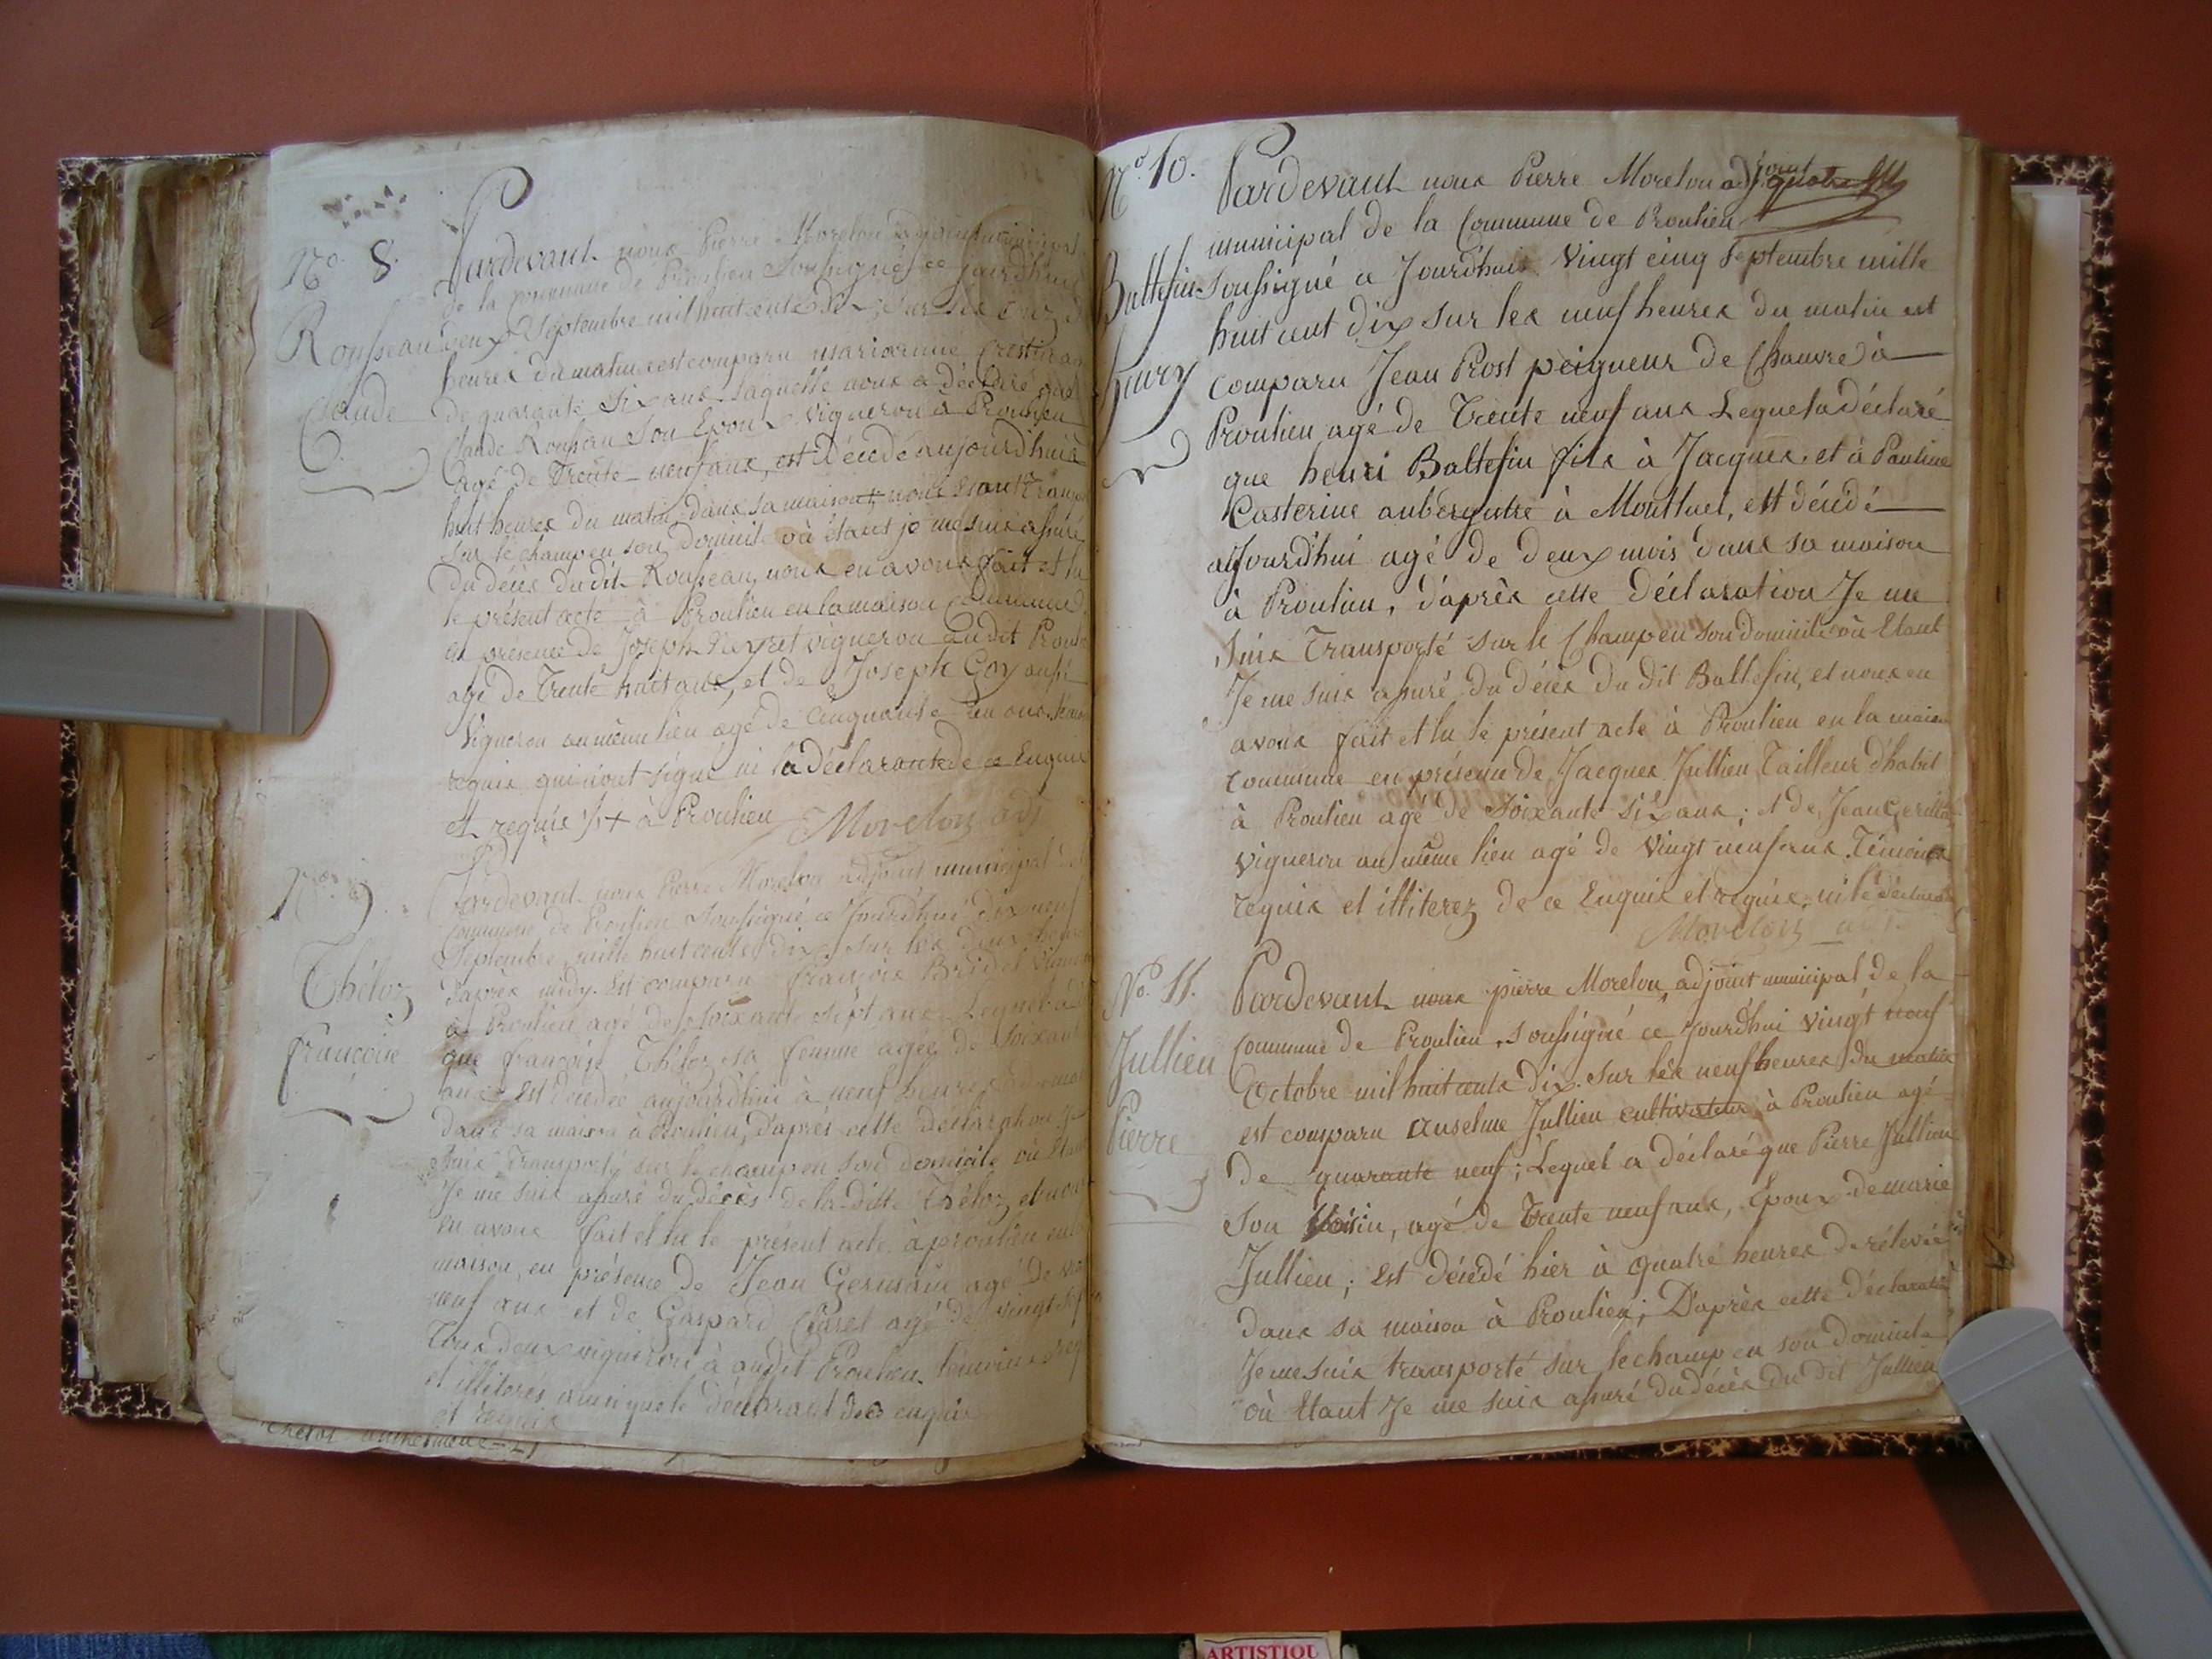 N.o 8.
Rousseau
Claude
Pardevant nous Pierre Morelon adjoint municipal
de la Commune de Proulieu Soussigné ce jourd'hui
deux Septembre mil huit cents dix, sur les onze
heures du matin est comparu marianne
de quarante six ans laquelle nous a déclaré que
Claude Rousseau Son Epoux Vigneron à Proulieu
agé de Trente neuf ans, est décédé aujourd'huis
huit heures du matin dans sa maison, nous étant
sur le champ en son domicile où étant je me suis assuré
du décès dudit Rousseau, nous en avons fait et lu
le présent acte à Proulieu en la maison commune
en présence de Joseph vigneron audit Proulieu
agé de Trente huit ans, et de Joseph Goy aussi
vigneron au même lieu agé de Cinquante un ans
requis qui n'ont signé ni la déclarante de ce Enquis
et requis à Proulieu Morelon adj
N.o 9.
Théloz
françoise
Pardevant nous Pierre Morelon adjoint municipal de
Commune de Proulieu soussigné ce Jourd'hui dix neuf
Septembre mille huit cents dix, sur les deux heures
d'après midy. Est comparu françois Bridet
à Proulieu agé de soixante sept ans Lequel a
que françoise Théloz sa femme agée de soixante
ans Est décédée aujourd'hui à neuf heures
dans sa maison à Proulieu, d'après cette déclaration je
suis Transporté sur le champ en son domicile où Etant
Je me suis assuré du décès de la ditte Théloz et nous
en avons fait et lu le présent acte à proulieu en
maison, en présence de Jean Germain agé de
neuf ans et de Gaspard agé de vingt
Tous deux vigneron à audit Proulieu témoins
et illiterés ainsi que le déclarant de ce enquis
et requis
N.o 10.
Baltesin
henry
Pardevant nous Pierre Morelon adjoint
municipal de la Commune de Proulieu
soussigné ce Jourd'huis Vingt cinq Septembre mille
huit cent dix sur les neuf heures du matin est
comparu Jean Prost peigneur de Chanvre à
Proulieu agé de Trente neuf ans Lequel a déclaré
que henri Baltesin fils à Jacques et à Pauline
Casterine aubergistre à Montluel, est décédé
aujourd'hui agé de deux mois dans sa maison
à Proulieu, d'après cette déclaration Je me
suis Transporté sur le Champ en son domicile où Etant
Je me suis assuré du décès du dit Baltesin, et nous en
avons fait et lu le présent acte à Proulieu en la maison
commune en présence de Jacques Jullien Tailleur d'habit
à Proulieu agé de Soixante six ans; et de Jean
vigneron au même lieu agé de Vingt neuf ans Témoins
requis et illiterez de ce Enquis et requis, ni le déclarant
Morelon adj.
N.o 11.
Jullien
Pierre
Pardevant nous pierre Morelon, adjoint municipal de la
Commune de Proulieu, soussigné ce Jourd'hui vingt neuf
Octobre mil huit cents dix. sur les neuf heures du matin
est comparu anselme Jullien cultivateur à Proulieu agé
de quarante neuf; Lequel a déclaré que Pierre Jullien
son Voisin, agé de Trente neuf ans, Epoux de marie
Jullien; Est décédé hier à quatre heures de rélevée
dans sa maison à Proulieu; D'après cette déclaration
Je me suis transporté sur le champ en son domicile
où Etant Je me suis assuré du décès du dit Jullien
ARTISTIQU